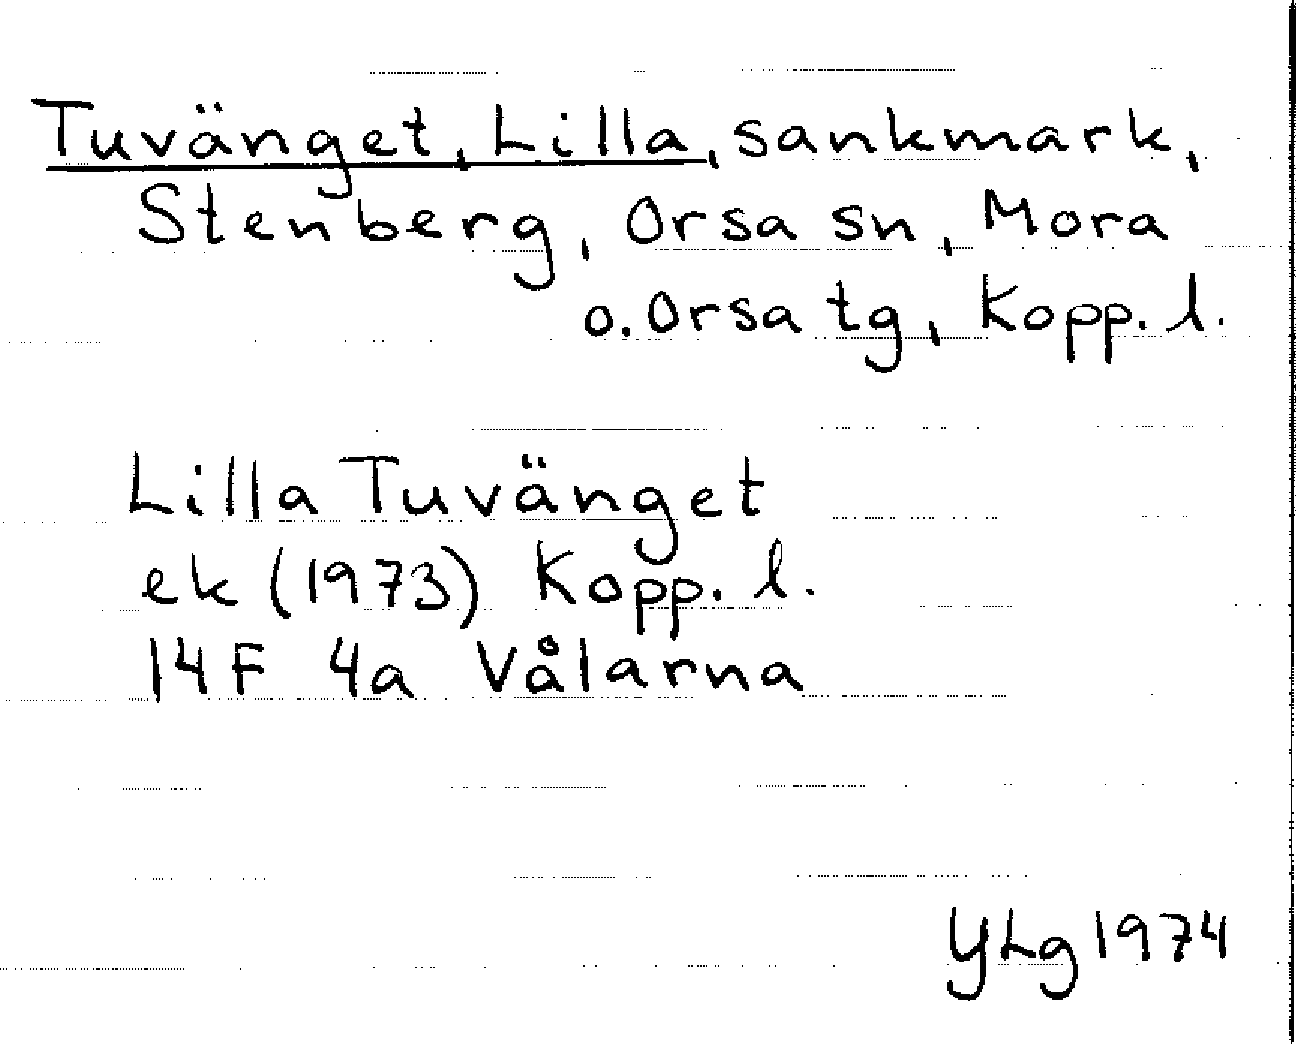 Tuvänget, Lilla, sankmark,
Stenberg, Orsa sn, Mora
o. Orsa tg, Kopp. l.
Lilla Tuvänget
ek (1973) Kopp. l.
14F 4a Vålarna
YLg 1974